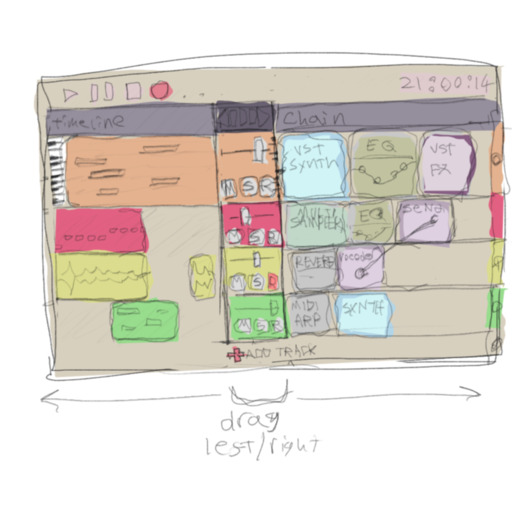 21:00:14
timeline
Chain
VST
SYNTH
EQ
VST
FX
M S R
SAMPLER
EQ
SEND
M S R
REVERB
VOCODER
M S R
MIDI
ARP
SYNTH
M S R
ADD TRACK
drag
left/right